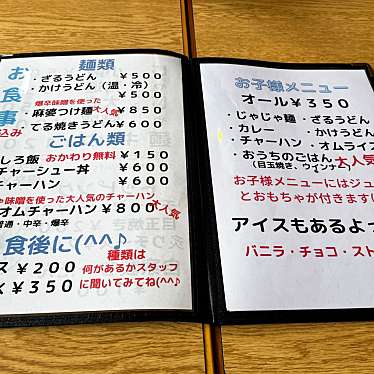 お食事
麺類
・ざるうどん ￥500
・かけうどん（温・冷） ￥500
爆辛味噌を使った
・麻婆つけ麺 大人気 ￥850
・てる焼きうどん ￥600
込み
ごはん類
しろ飯 おかわり無料 ￥150
チャーシュー丼 ￥600
チャーハン ￥600
味噌を使った大人気のチャーハン
オムチャーハン ￥800 大人気
普通・中辛・爆辛
食後に(^^♪
ス ￥200
￥350
種類は
何があるかスタッフ
に聞いてみてね(^^♪
お子様メニュー
オール￥350
・じゃじゃ麺 ・ざるうどん
・カレー ・かけうどん
・チャーハン ・オムライス
・おうちのごはん 大人気
（目玉焼き、ウインナー）
お子様メニューにはジュ
とおもちゃが付きます
アイスもあるよっ
バニラ・チョコ・スト